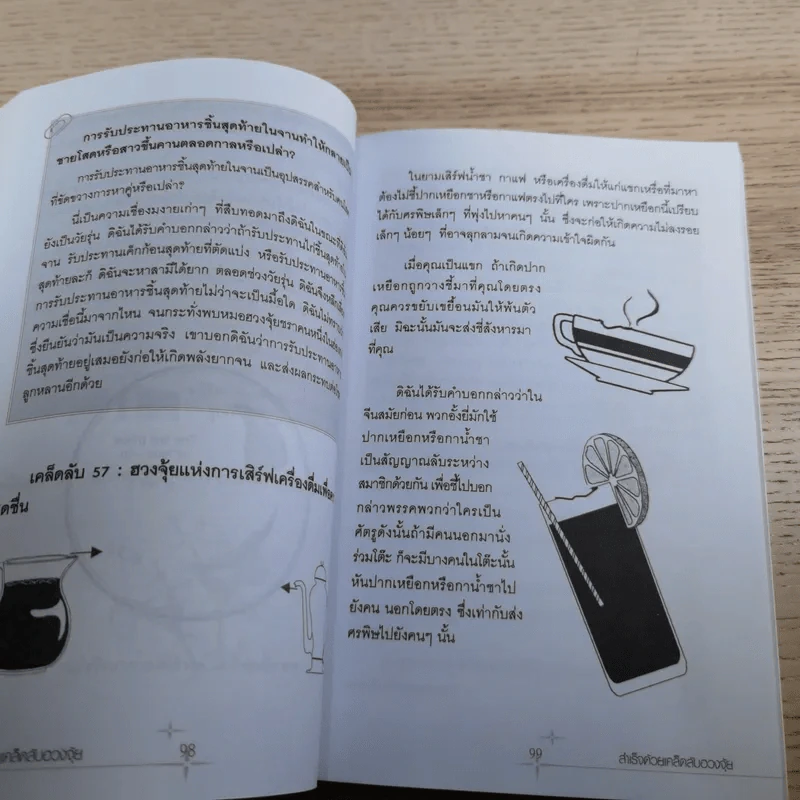 การรับประทานอาหารชิ้นสุดท้ายในจานทำให้กลายเป็น
ชายโสดหรือสาวขึ้นคานตลอดกาลหรือเปล่า?
การรับประทานอาหารชิ้นสุดท้ายในจานเป็นอุปสรรคสำหรับ
ที่ขัดขวางการหาคู่หรือเปล่า?
นี่เป็นความเชื่องมงายเก่าๆ ที่สืบทอดมาถึงดิฉันในขณะที่
ยังเป็นวัยรุ่น ดิฉันได้รับคำบอกกล่าวว่าถ้ารับประทานไก่ชิ้นสุดท้าย
จาน รับประทานเค้กก้อนสุดท้ายที่ตัดแบ่ง หรือรับประทานอาหาร
สุดท้ายละก็ ดิฉันจะหาสามีได้ยาก ตลอดช่วงวัยรุ่น ดิฉันจึง
การรับประทานอาหารชิ้นสุดท้ายไม่ว่าจะเป็นมื้อใด ดิฉันไม่ทราบ
ความเชื่อนี้มาจากไหน จนกระทั่งพบหมอฮวงจุ้ยชราคนหนึ่งใน
ซึ่งยืนยันว่ามันเป็นความจริง เขาบอกดิฉันว่าการรับประทานอาหาร
ชิ้นสุดท้ายอยู่เสมอยังก่อให้เกิดพลังยากจน และส่งผลกระทบต่อ
ลูกหลานอีกด้วย
เคล็ดลับ 57 : ฮวงจุ้ยแห่งการเสิร์ฟเครื่องดื่มเพื่อ
ดชื่น
98
เคล็ดลับฮวงจุ้ย
ในยามเสิร์ฟน้ำชา กาแฟ หรือเครื่องดื่มให้แก่แขกเหรื่อที่มาหา
ต้องไม่ชี้ปากเหยือกชาหรือกาแฟตรงไปที่ใคร เพราะปากเหยือกนี้เปรียบ
ได้กับศรพิษเล็กๆ ที่พุ่งไปหาคนๆ นั้น ซึ่งจะก่อให้เกิดความไม่ลงรอย
เล็กๆ น้อยๆ ที่อาจลุกลามจนเกิดความเข้าใจผิดกัน
เมื่อคุณเป็นแขก ถ้าเกิดปาก
เหยือกถูกวางชี้มาที่คุณโดยตรง
คุณควรขยับเขยื้อนมันให้พ้นตัว
เสีย มิฉะนั้นมันจะส่งชี่สังหารมา
ที่คุณ
ดิฉันได้รับคำบอกกล่าวว่าใน
จีนสมัยก่อน พวกอั้งยี่มักใช้
ปากเหยือกหรือกาน้ำชา
เป็นสัญญาณลับระหว่าง
สมาชิกด้วยกัน เพื่อชี้ไปบอก
กล่าวพรรคพวกว่าใครเป็น
ศัตรูดังนั้นถ้ามีคนนอกมานั่ง
ร่วมโต๊ะ ก็จะมีบางคนในโต๊ะนั้น
หันปากเหยือกหรือกาน้ำชาไป
ยังคน นอกโดยตรง ซึ่งเท่ากับส่ง
ศรพิษไปยังคนๆ นั้น
99
สำเร็จด้วยเคล็ดลับฮวงจุ้ย